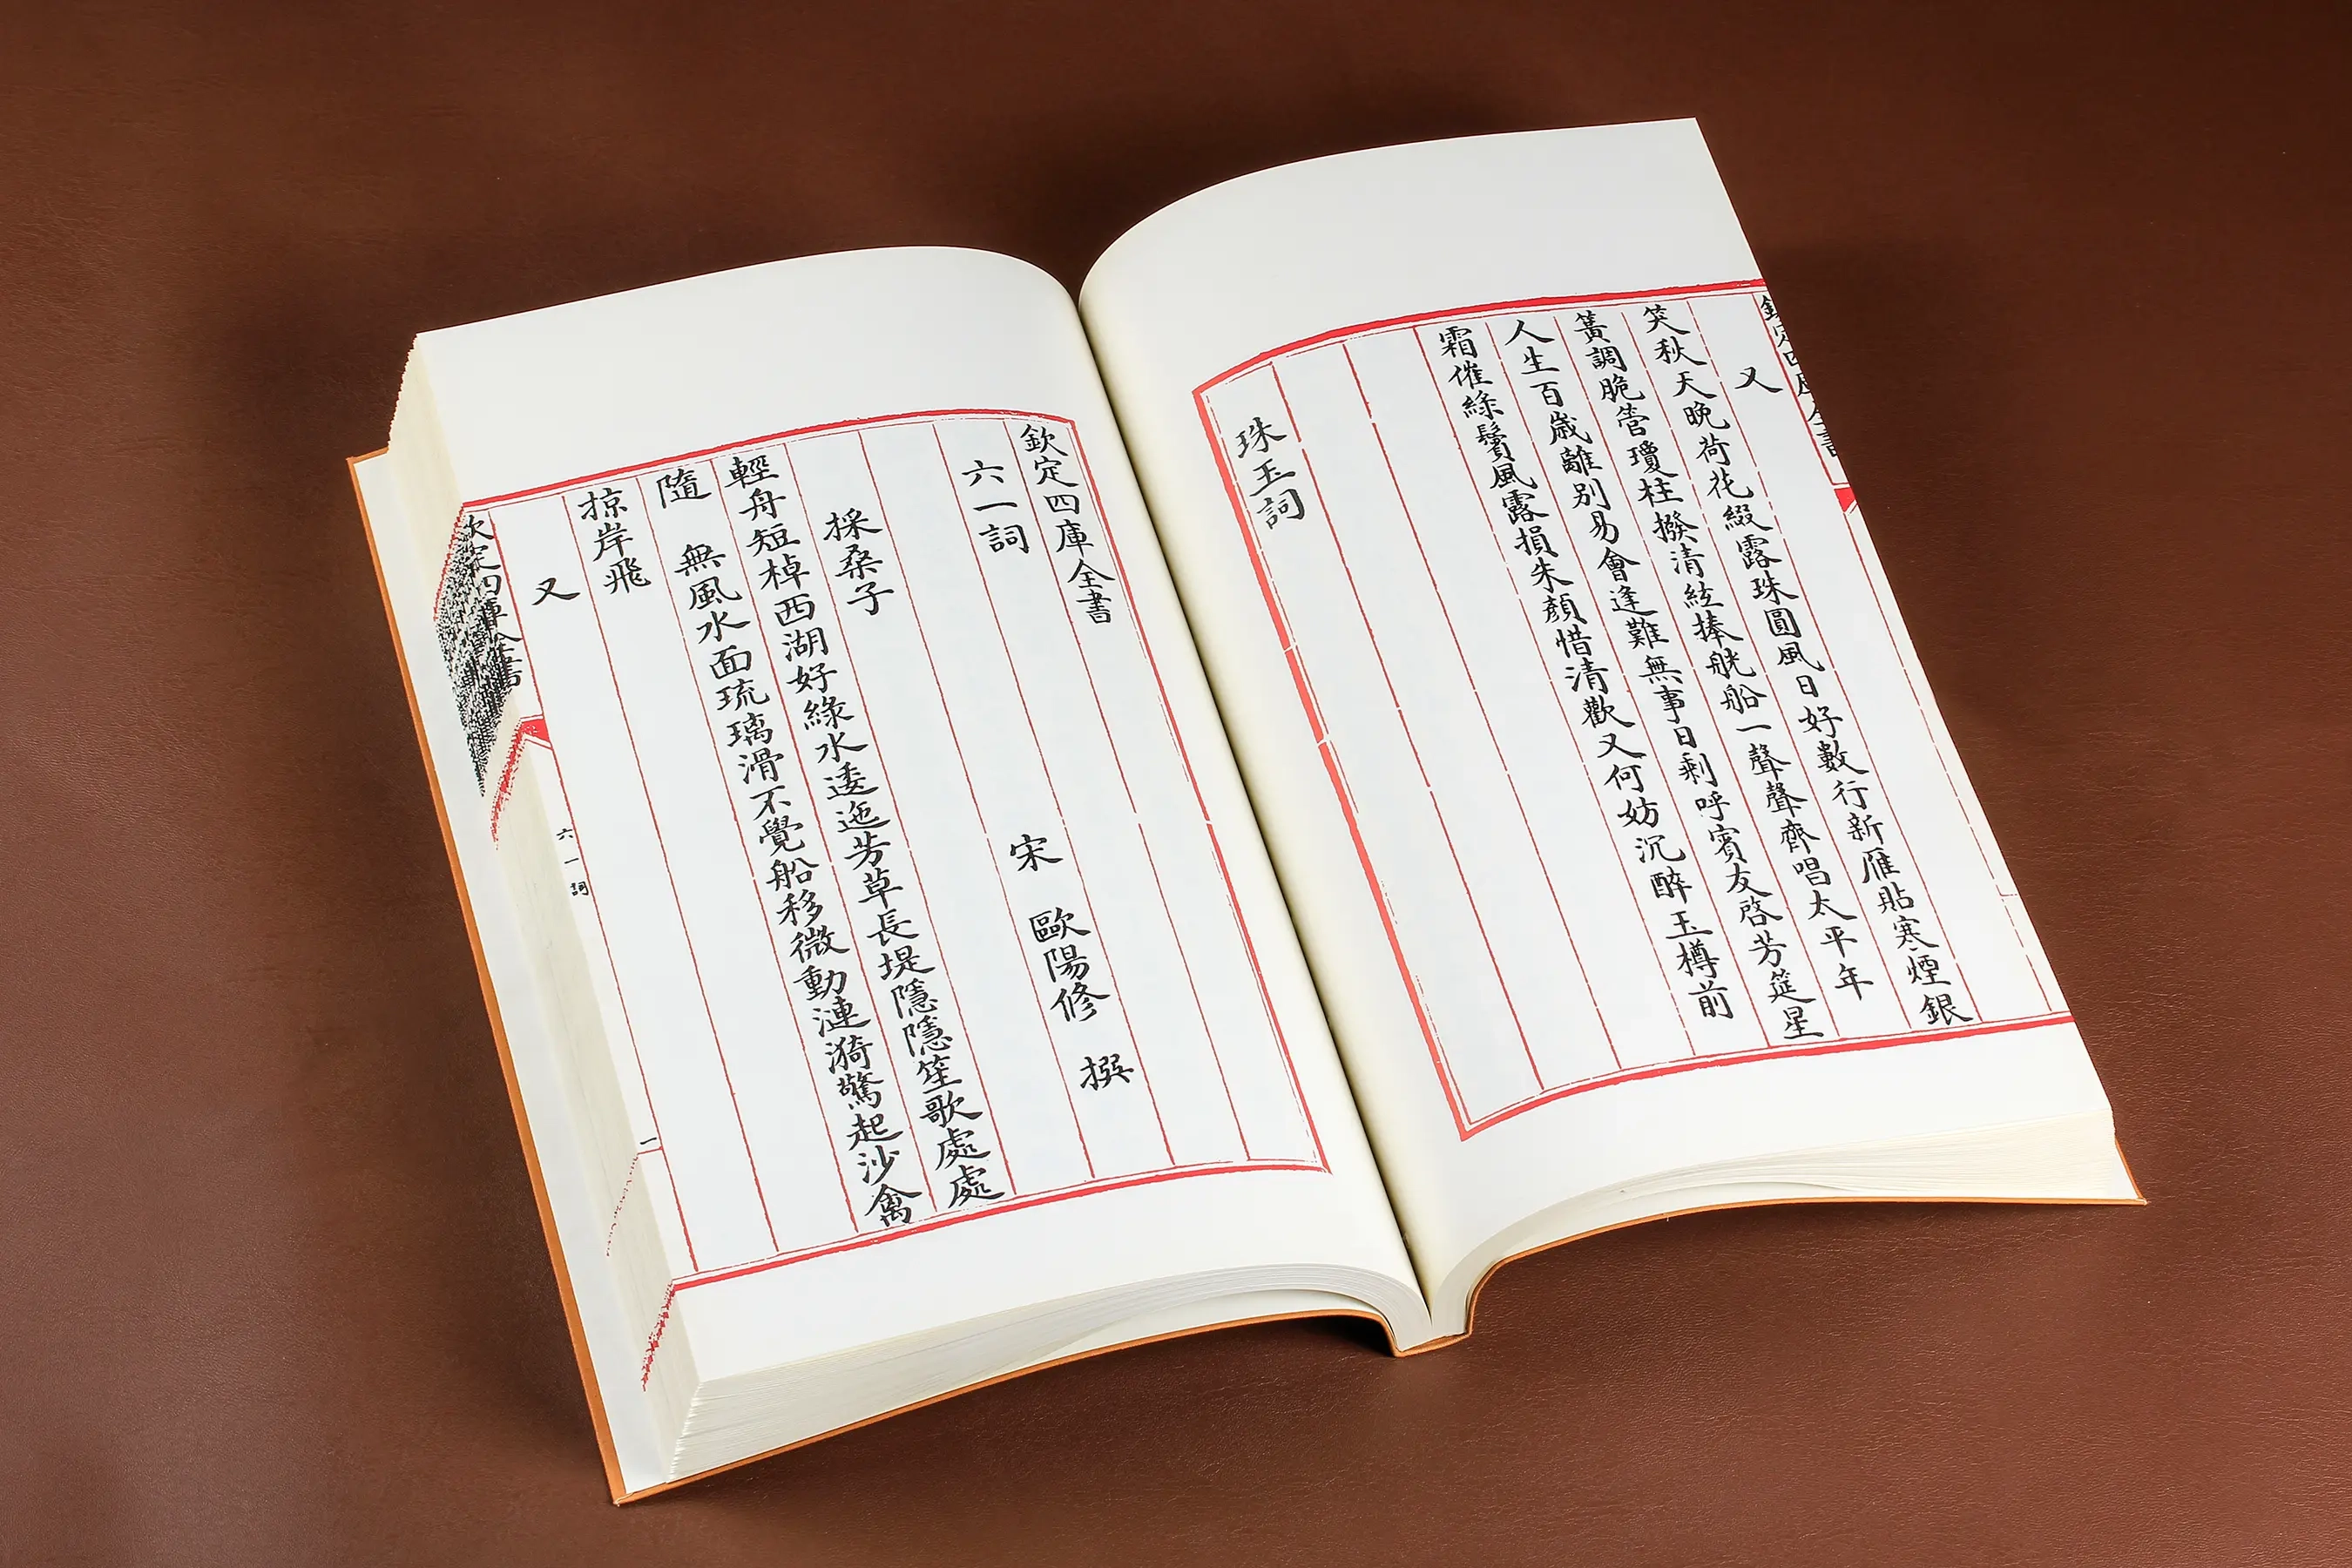 欽定四庫全書
又
笑秋天晚荷花綴露珠圓風日好數行新雁貼寒煙銀
簧調脆管瓊柱撥清絃捧觥船一聲聲齊唱太平年
人生百歲離别易會逢難無事日剩呼賓友啓芳筵星
霜催綠鬢風露損朱顔惜清歡又何妨沉醉玉樽前
珠玉詞
欽定四庫全書
六一詞
宋 歐陽修 撰
採桑子
輕舟短棹西湖好綠水逶迤芳草長堤隱隱笙歌處處
隨 無風水面琉璃滑不覺船移微動漣漪驚起沙禽
掠岸飛
又
欽定四庫全書
六一詞
一